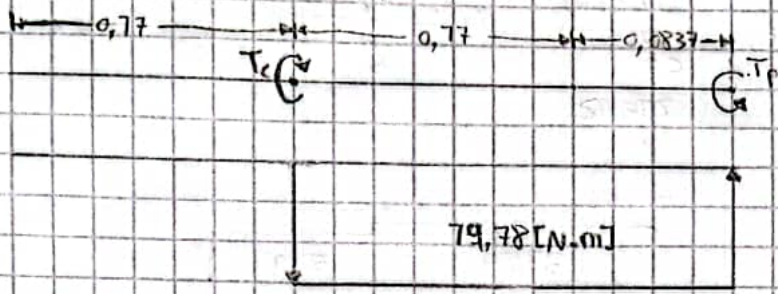 0,77 0,77 0,0837
Tc Tp
79,78 [N-m]